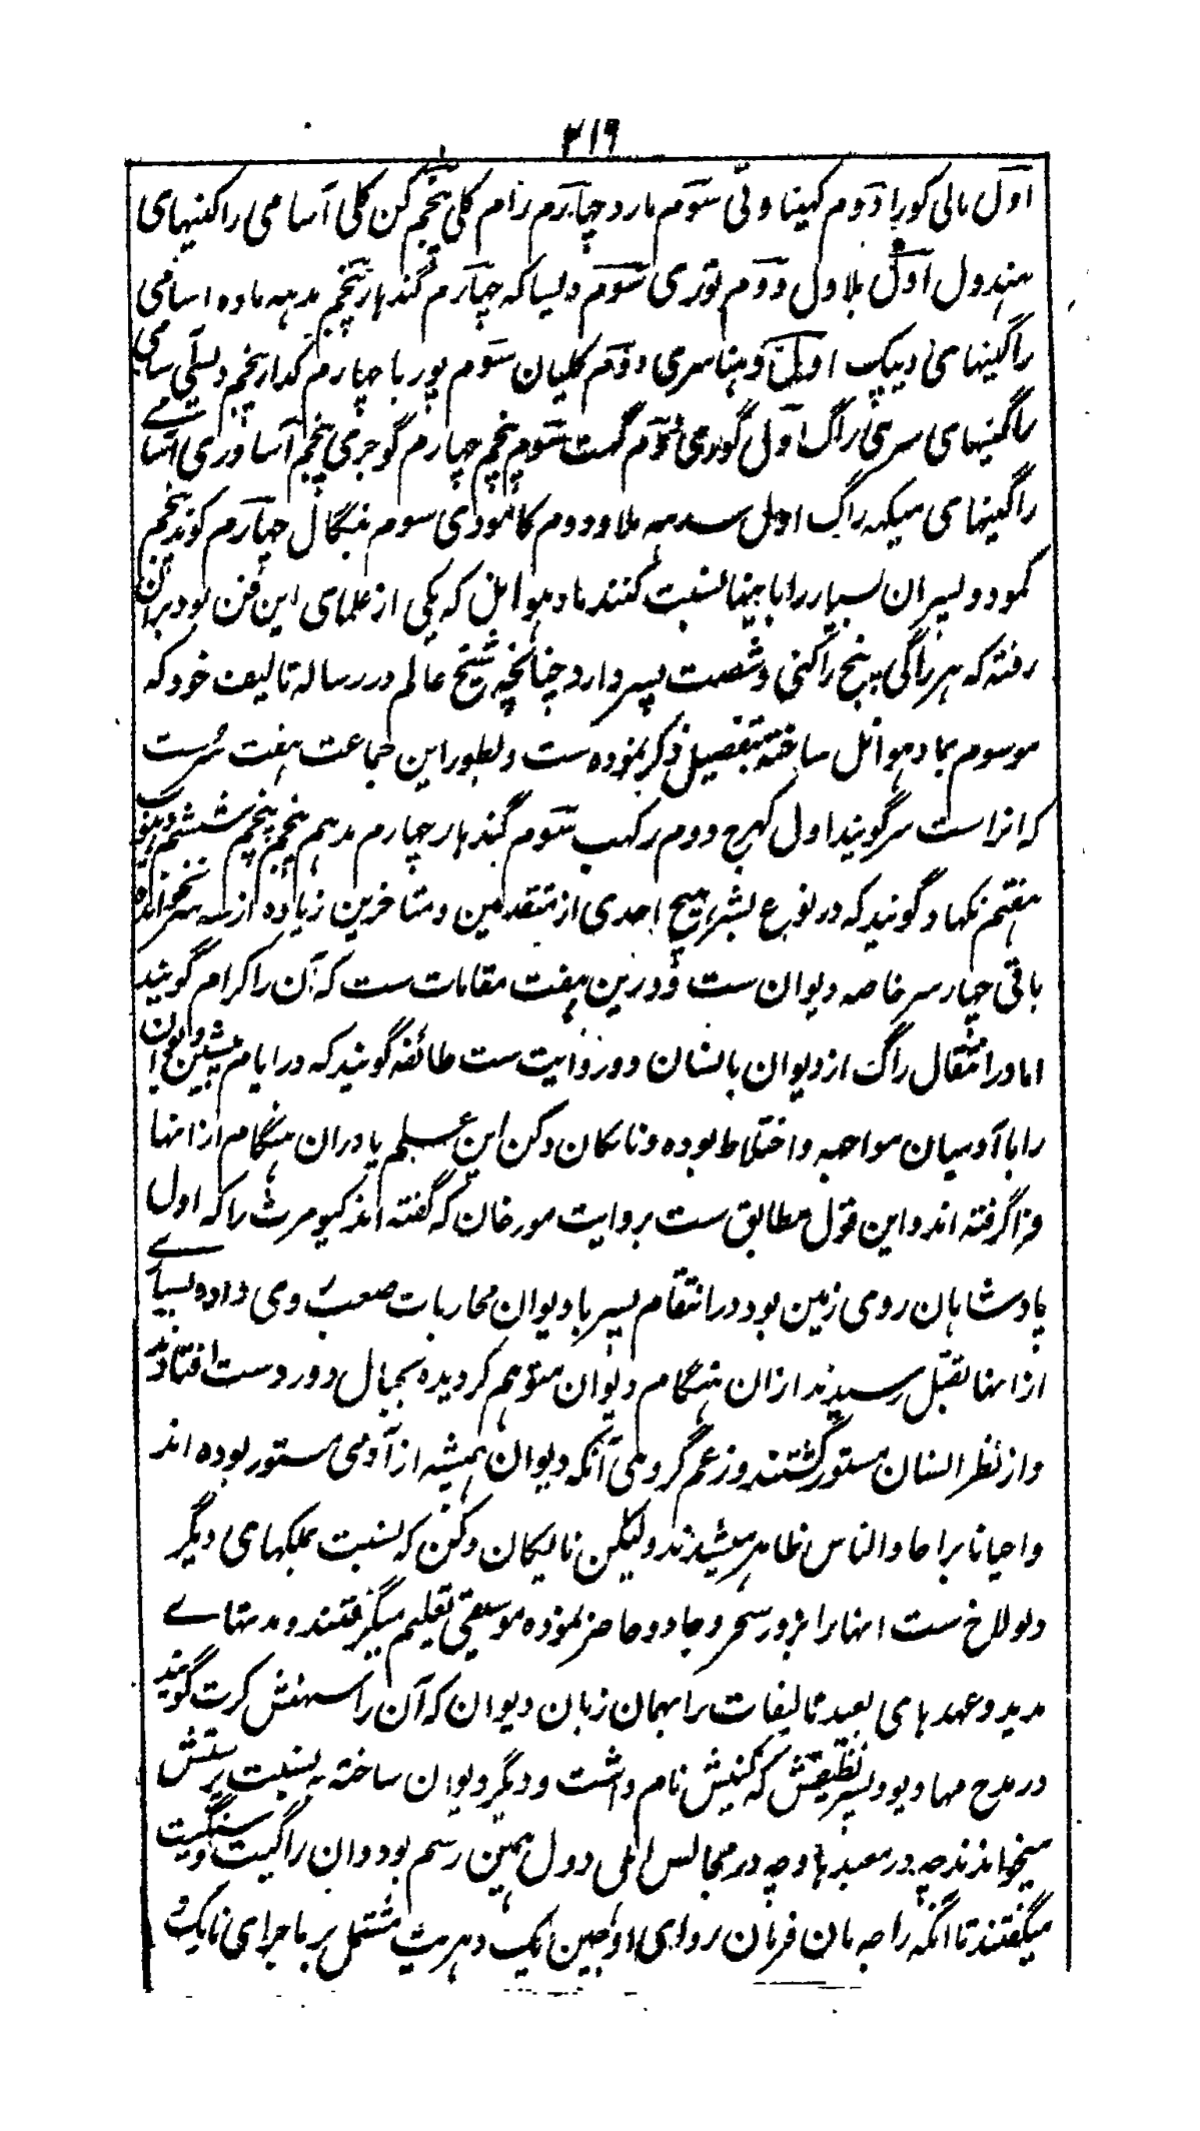 ۲۱۹
اول مالی کورا دوم کهینا وتی سوم مارد چهارم رام کلی پنجم کن کلی آسامی راگنیهای
هندول اول بلاول دوم توری سوم دیساکه چهارم گندهار پنجم مدهه ماده اسامی
راگنیهای دیپک اول دهناسری دوم کلیان سوم پوربا چهارم کدار پنجم دیسی سامی
راگنیهای سری راگ اول گوری دوم سوم پنچم چهارم گوجری پنجم آساوری اسا
راگنیهای میکهه راگ اول سدهه ملار دوم کامودی سوم بنگال چهارم کوند پنجم
کمود و پسران بسیار را باینها نسبت کنند مادهوانل که یکی از علمای این فن بود بران
رفته که هر راگی پنج راگنی و شصت پسر دارد چنانچه شیخ عالم در رساله تالیف خود که
موسوم بمادهوانل ساخته بتفصیل ذکر نموده ست و بطور این جماعت هفت سرست
که انرا ست سر گویند اول کهرج دوم رکهب سوم گندهار چهارم مدهم پنجم پنچم ششم دهیوت
هفتم نکهاد گویند که در نوع بشر هیچ احدی از متقدمین و متاخرین زیاده از سه سر نخوانده
باقی چهار سر خاصه دیوان ست و درین هفت مقامات ست که آن را کرام گویند
اما در انتقال راگ از دیوان بانسان دو روایت ست طائفه گویند که در ایام پیشین دیوان
را با آدمیان مواجهه و اختلاط بوده و نایکان دکن این علم یا دران هنگام از انها
فرا گرفته اند و این قول مطابق ست بروایت مورخان که گفته اند کیومرث را که اول
پادشاهان روی زمین بود در انتقام پسر با دیوان محاربات صعب روی داده بسیاری
از انها بقتل رسیدند ازان هنگام دیوان متوهم گردیده بجبال دور دست افتادند
و از نظر انسان مستور گشتند و زعم گروهی آنکه دیوان همیشه از آدمی مستور بوده اند
و احیانا بر احاد الناس ظاهر میشدند ولیکن نایکان دکن که نسبت بملکهای دیگر
دیولاخ ست انها را بزور سحر و جادو حاضر نموده موسیقی تعلیم میگرفتند و مدتهای
مدید و عهدهای بعید تالیفات را بهمان زبان دیوان که آن را سهنش کرت گویند
در مدح مهادیو و پسر نظیفتش که گنیش نام داشت و دیگر دیوان ساخته به نسبت پرستش
میخواندند چه در معبدها و چه در مجالس اهل دول همین رسم بود و آن را گیت و سنگیت
میگفتند تا آنکه راجه مان فرمان روای اوجین ایک دهرپت مشتمل بر ماجرای نایک و